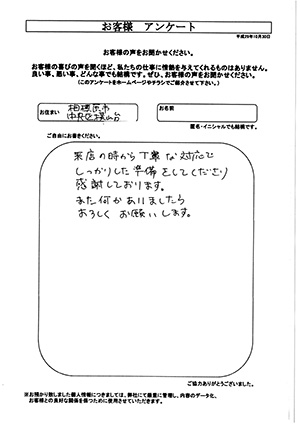 お客様 アンケート
平成29年10月30日
お客様の声をお聞かせください。
お客様の喜びの声を聞くほど、私たちの仕事に情熱を与えてくれるものはありません。
良い事、悪い事、どんな事でも結構です。ぜひ、お客様の声をお聞かせください。
(このアンケートをホームページやチラシでご紹介させて下さい。)
お住まい 相模原市
中央区横山台
お名前
匿名・イニシャルでも結構です。
ご自由にお書きください。
来店の時から丁寧な対応で
しっかりした準備をしてくださり
感謝しております。
また何かありましたら
よろしくお願いします。
ご協力ありがとうございました。
※お預かり致しました個人情報につきましては、弊社にて厳重に管理し、内容のデータ化、
お客様との良好な関係を築くために使用させていただきます。